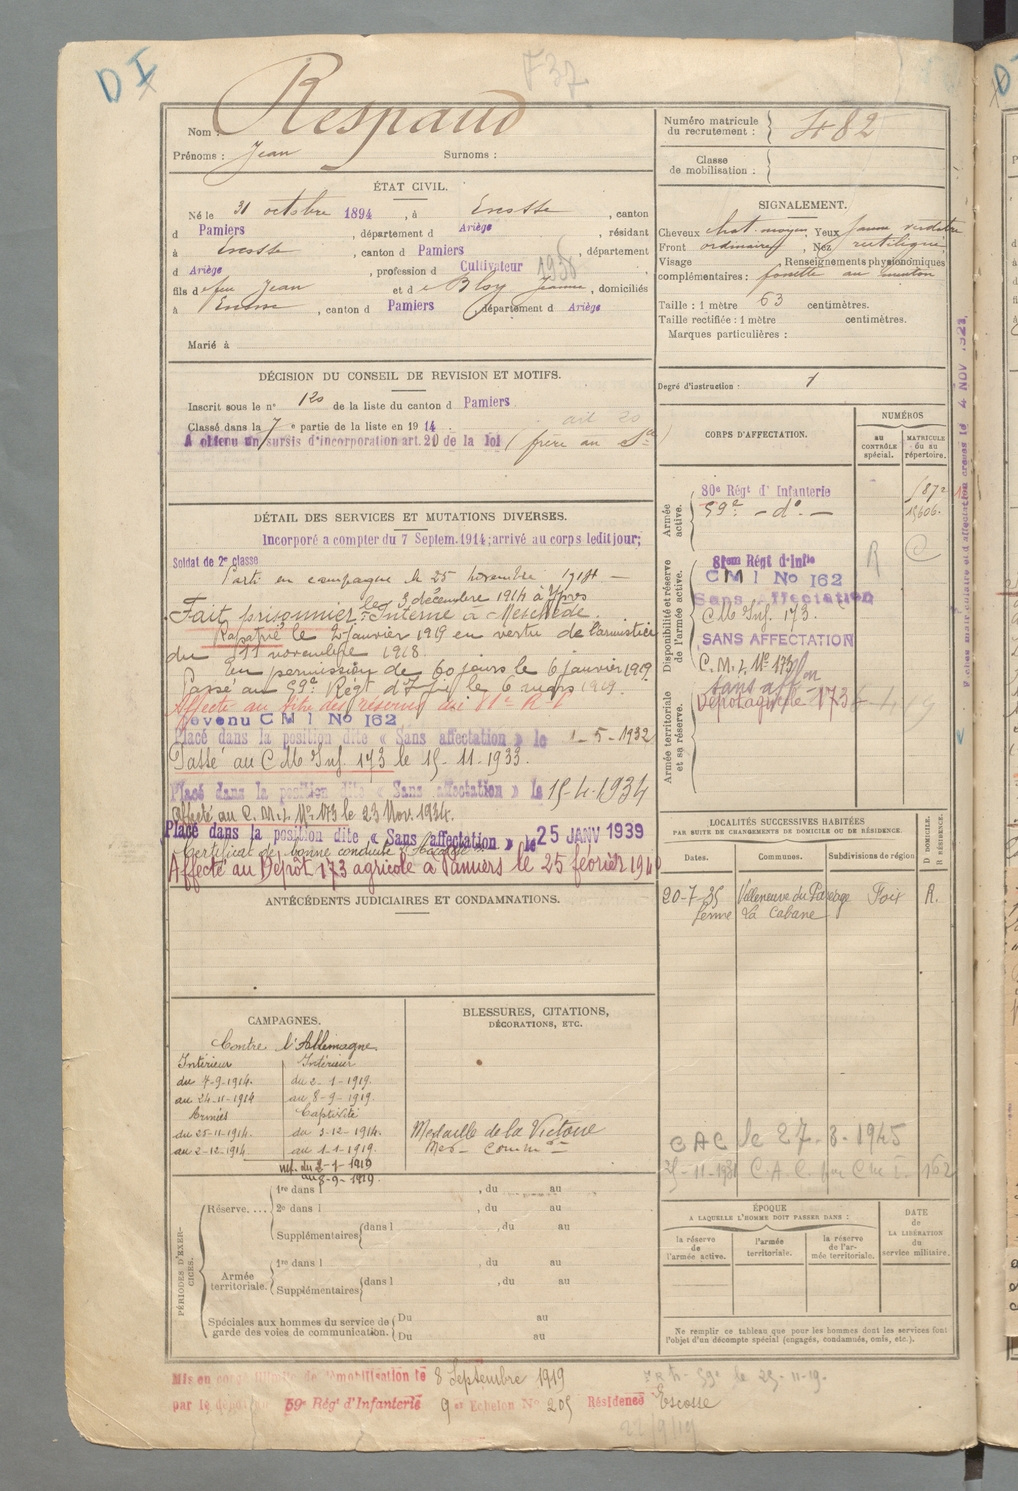 D I
F37
Nom : Respaud
Prénoms : Jean Surnoms :
ÉTAT CIVIL.
Né le 31 octobre 1894, à Escosse, canton
d Pamiers, département d Ariège, résidant
à Escosse, canton d Pamiers, département
d Ariège, profession d Cultivateur 1938
fils de feu Jean et de Bloy Jeanne, domiciliés
à Escosse, canton d Pamiers, département d Ariège
Marié à
DÉCISION DU CONSEIL DE REVISION ET MOTIFS.
Inscrit sous le n° 120 de la liste du canton d Pamiers
Classé dans la 7 e partie de la liste en 1914. art 20
A obtenu un sursis d'incorporation art. 20 de la loi (frère au Sce)
DÉTAIL DES SERVICES ET MUTATIONS DIVERSES.
Incorporé a compter du 7 Septem. 1914; arrivé au corps ledit jour;
Soldat de 2e classe
Parti en campagne le 25 novembre 1914 —
Fait prisonnier le 3 décembre 1914 à Ypres
Interné à Meschède.
Rapatrié le 2 janvier 1919 en vertu de l'armistice
du 11 novembre 1918.
En permission de 60 jours le 6 janvier 1919.
Passé au 59e Régt d'Ifie le 6 mars 1919.
Affecté au titre des réserves au 81e R.I.
devenu CMI No 162
Placé dans la position dite « Sans affectation » le 1-5-1932
Passé au C M Inf. 173 le 15-11-1933.
Placé dans la position dite « Sans affectation » le 15-4-1934
Affecté au C.M.I. No 173 le 23 Nov. 1934.
Placé dans la position dite « Sans affectation » le 25 JANV 1939
Certificat de bonne conduite « Accordé »
Affecté au Dépôt 173 agricole à Pamiers le 25 février 1940
ANTÉCÉDENTS JUDICIAIRES ET CONDAMNATIONS.
CAMPAGNES.
Contre l'Allemagne
Intérieur
du 7-9-1914.
au 24-11-1914
Armées
du 25-11-1914.
au 2-12-1914.
Intérieur
du 2-1-1919.
au 8-9-1919.
Captivité
du 3-12-1914.
au 1-1-1919.
int. du 2-1-1919
au 8-9-1919.
BLESSURES, CITATIONS,
DÉCORATIONS, ETC.
Médaille de la Victoire
Med. Commve
PÉRIODES D'EXERCICES.
Réserve....
1re dans l , du au
2e dans l , du au
Supplémentaires dans l , du au
Armée territoriale.
1re dans l , du au
Supplémentaires dans l , du au
Spéciales aux hommes du service de
garde des voies de communication.
Du au
Du au
Numéro matricule
du recrutement : 482
Classe
de mobilisation :
SIGNALEMENT.
Cheveux chat. moyen, Yeux jaune verdâtre
Front ordinaire, Nez rectiligne
Visage Renseignements physionomiques
complémentaires : fossette au menton
Taille : 1 mètre 63 centimètres.
Taille rectifiée : 1 mètre centimètres.
Marques particulières :
Degré d'instruction : 1
CORPS D'AFFECTATION.
NUMÉROS
AU CONTRÔLE spécial.
MATRICULE ou au répertoire.
Armée active.
80e Régt d'Infanterie
59e — do. —
15606.
Disponibilité et réserve de l'armée active.
81em Régt d'Infie R
CMI No 162
Sans Affectation
C M Inf. 173.
SANS AFFECTATION
C.M.I. No 173
Sans affon
Armée territoriale et sa réserve.
Dépôt agricole 173
LOCALITÉS SUCCESSIVES HABITÉES
PAR SUITE DE CHANGEMENTS DE DOMICILE OU DE RÉSIDENCE.
Dates. Communes. Subdivisions de région D DOMICILE. R RÉSIDENCE.
20-7-35 Villeneuve du Paréage Foix R.
ferme La Cabane
CAC le 27-8-1945
25-11-1931 C.A.C. par C M I. 162
ÉPOQUE
A LAQUELLE L'HOMME DOIT PASSER DANS :
la réserve de l'armée active.
l'armée territoriale.
la réserve de l'armée territoriale.
DATE de LA LIBÉRATION du service militaire.
Ne remplir ce tableau que pour les hommes dont les services font
l'objet d'un décompte spécial (engagés, condamnés, omis, etc.).
Mis en congé illimité de démobilisation le 8 Septembre 1919
par le dépôt du 59e Régt d'Infanterie 9e Echelon No 205 Résidence Escosse
59e le 25-11-19.
22/9/19